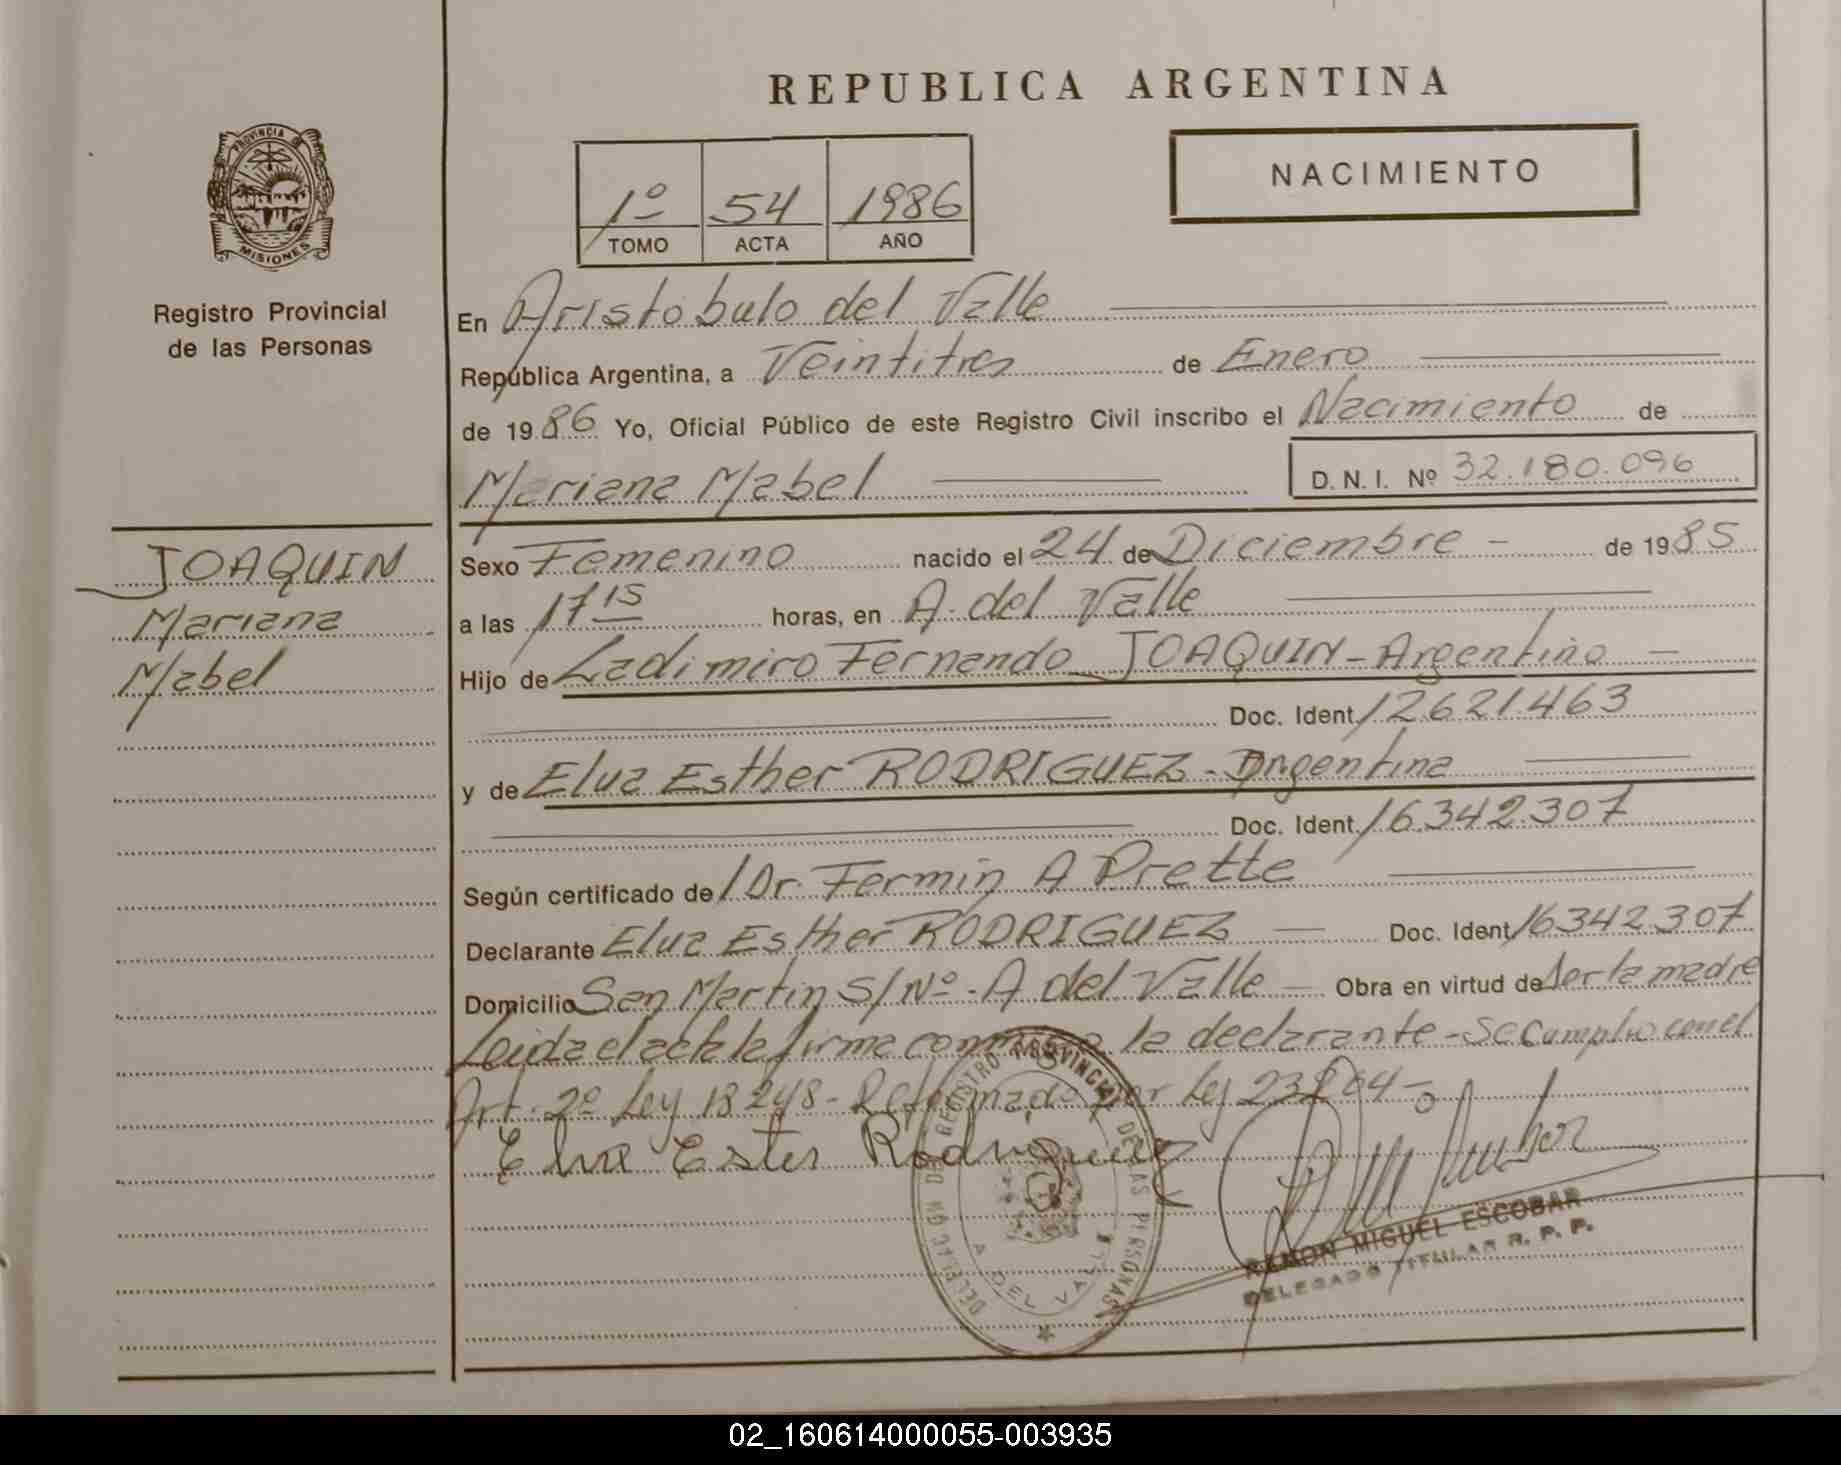 REPUBLICA ARGENTINA
PROVINCIA DE
MISIONES
Registro Provincial
de las Personas
1º 54 1986
TOMO ACTA AÑO
NACIMIENTO
En Aristóbulo del Valle
República Argentina, a Veintitres de Enero
de 1986 Yo, Oficial Público de este Registro Civil inscribo el Nacimiento de
Mariana Mabel D. N. I. Nº 32.180.096
JOAQUIN
Mariana
Mabel
Sexo Femenino nacido el 24 de Diciembre - de 1985
a las 17 15 horas, en A. del Valle
Hijo de Ladimiro Fernando JOAQUIN - Argentino -
Doc. Ident. 12621463
y de Elva Esther RODRIGUEZ - Argentina
Doc. Ident. 16.342.307
Según certificado de Dr. Fermin A Prette
Declarante Elva Esther RODRIGUEZ - Doc. Ident. 16342307
Domicilio San Martin S/Nº - A del Valle - Obra en virtud de ser la madre
Leida el acta la firma conmigo la declarante - Se cumplio con el
Art. 2º Ley 18248 - Reformado por Ley 23264 -
Elva Ester Rodriguez
DELEGACION DEL REGISTRO PROVINCIAL DE LAS PERSONAS
A. DEL VALLE
RAMON MIGUEL ESCOBAR
DELEGADO TITULAR R. P. P.
02_160614000055-003935